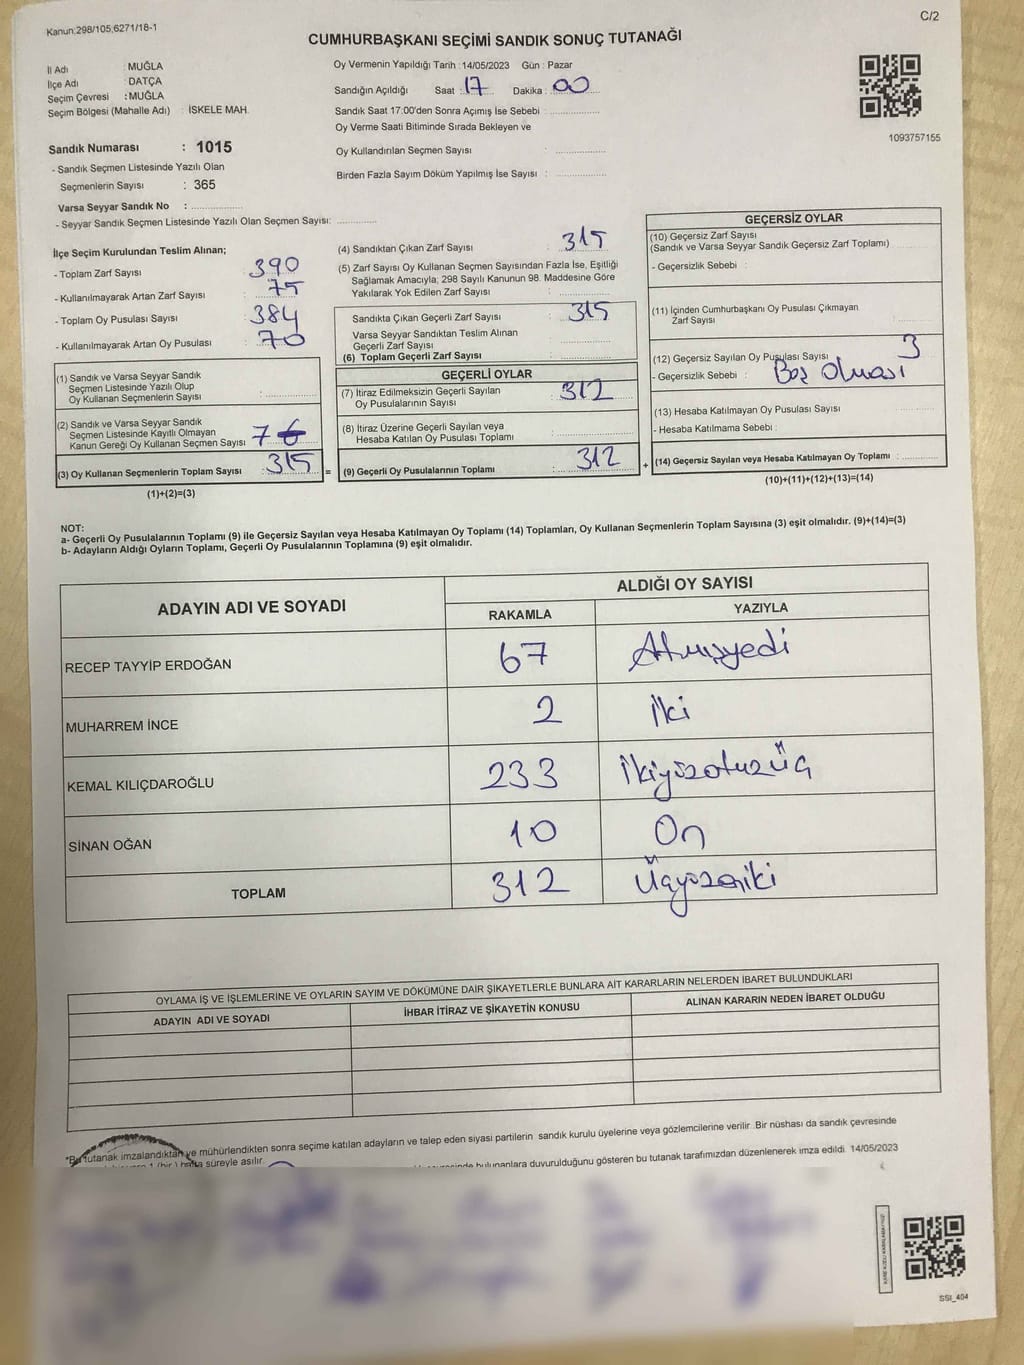 Kanun:298/105;6271/18-1
C/2
CUMHURBAŞKANI SEÇİMİ SANDIK SONUÇ TUTANAĞI
İl Adı : MUĞLA
İlçe Adı : DATÇA
Seçim Çevresi : MUĞLA
Seçim Bölgesi (Mahalle Adı) : İSKELE MAH.
Sandık Numarası : 1015
- Sandık Seçmen Listesinde Yazılı Olan
Seçmenlerin Sayısı : 365
Varsa Seyyar Sandık No :
- Seyyar Sandık Seçmen Listesinde Yazılı Olan Seçmen Sayısı:
Oy Vermenin Yapıldığı Tarih : 14/05/2023 Gün : Pazar
Sandığın Açıldığı Saat : 17 Dakika : 00
Sandık Saat 17:00'den Sonra Açımış İse Sebebi :
Oy Verme Saati Bitiminde Sırada Bekleyen ve
Oy Kullandırılan Seçmen Sayısı :
Birden Fazla Sayım Döküm Yapılmış İse Sayısı :
1093757155
İlçe Seçim Kurulundan Teslim Alınan;
- Toplam Zarf Sayısı : 390
- Kullanılmayarak Artan Zarf Sayısı : 75
- Toplam Oy Pusulası Sayısı : 384
- Kullanılmayarak Artan Oy Pusulası : 70
(1) Sandık ve Varsa Seyyar Sandık
Seçmen Listesinde Yazılı Olup
Oy Kullanan Seçmenlerin Sayısı :
(2) Sandık ve Varsa Seyyar Sandık
Seçmen Listesinde Kayıtlı Olmayan
Kanun Gereği Oy Kullanan Seçmen Sayısı 7
(3) Oy Kullanan Seçmenlerin Toplam Sayısı : 315 =
(1)+(2)=(3)
(4) Sandıktan Çıkan Zarf Sayısı : 315
(5) Zarf Sayısı Oy Kullanan Seçmen Sayısından Fazla İse, Eşitliği
Sağlamak Amacıyla; 298 Sayılı Kanunun 98. Maddesine Göre
Yakılarak Yok Edilen Zarf Sayısı :
Sandıkta Çıkan Geçerli Zarf Sayısı : 315
Varsa Seyyar Sandıktan Teslim Alınan
Geçerli Zarf Sayısı :
(6) Toplam Geçerli Zarf Sayısı :
GEÇERLİ OYLAR
(7) İtiraz Edilmeksizin Geçerli Sayılan
Oy Pusulalarının Sayısı : 312
(8) İtiraz Üzerine Geçerli Sayılan veya
Hesaba Katılan Oy Pusulası Toplamı :
(9) Geçerli Oy Pusulalarının Toplamı : 312 +
GEÇERSİZ OYLAR
(10) Geçersiz Zarf Sayısı
(Sandık ve Varsa Seyyar Sandık Geçersiz Zarf Toplamı)
- Geçersizlik Sebebi :
(11) İçinden Cumhurbaşkanı Oy Pusulası Çıkmayan
Zarf Sayısı :
(12) Geçersiz Sayılan Oy Pusulası Sayısı : 3
- Geçersizlik Sebebi : Boş Olması
(13) Hesaba Katılmayan Oy Pusulası Sayısı
- Hesaba Katılmama Sebebi :
(14) Geçersiz Sayılan veya Hesaba Katılmayan Oy Toplamı :
(10)+(11)+(12)+(13)=(14)
NOT:
a- Geçerli Oy Pusulalarının Toplamı (9) ile Geçersiz Sayılan veya Hesaba Katılmayan Oy Toplamı (14) Toplamları, Oy Kullanan Seçmenlerin Toplam Sayısına (3) eşit olmalıdır. (9)+(14)=(3)
b- Adayların Aldığı Oyların Toplamı, Geçerli Oy Pusulalarının Toplamına (9) eşit olmalıdır.
ADAYIN ADI VE SOYADI ALDIĞI OY SAYISI
RAKAMLA YAZIYLA
RECEP TAYYİP ERDOĞAN 67 Atmışyedi
MUHARREM İNCE 2 İki
KEMAL KILIÇDAROĞLU 233 İkiyüzotuzüç
SİNAN OĞAN 10 On
TOPLAM 312 Üçyüzoniki
OYLAMA İŞ VE İŞLEMLERİNE VE OYLARIN SAYIM VE DÖKÜMÜNE DAİR ŞİKAYETLERLE BUNLARA AİT KARARLARIN NELERDEN İBARET BULUNDUKLARI
ADAYIN ADI VE SOYADI İHBAR İTİRAZ VE ŞİKAYETİN KONUSU ALINAN KARARIN NEDEN İBARET OLDUĞU
*Bu tutanak imzalandıktan ve mühürlendikten sonra seçime katılan adayların ve talep eden siyasi partilerin sandık kurulu üyelerine veya gözlemcilerine verilir. Bir nüshası da sandık çevresinde
1 (bir) hafta süreyle asılır.
bulunanlara duyurulduğunu gösteren bu tutanak tarafımızdan düzenlenerek imza edildi. 14/05/2023
SSI_404